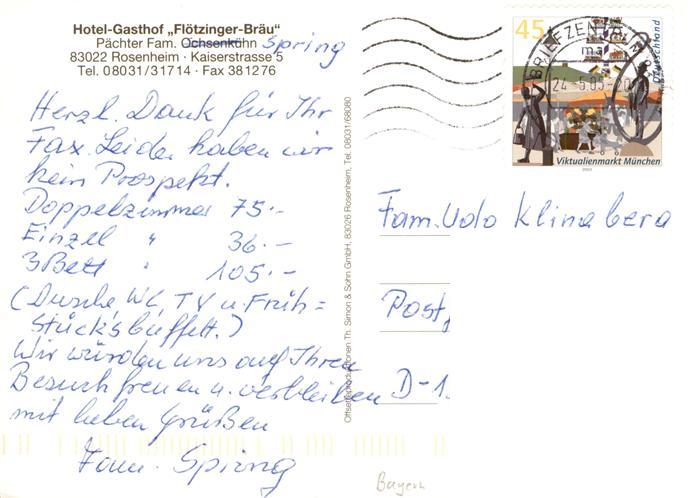 Hotel-Gasthof „Flötzinger-Bräu“
Pächter Fam. Ochsenkühn Spring
83022 Rosenheim · Kaiserstrasse 5
Tel. 08031/31714 · Fax 381276
Herzl. Dank für Ihr
Fax. Leider haben wir
kein Prospekt.
Doppelzimmer 75.-
Einzel " 36.-
3Bett " 105.-
(Dusche, WC, TV u. Früh=
stücksbuffett.)
Wir würden uns auf Ihren
Besuch freuen u. verbleiben
mit lieben Grüßen
Fam. Spring
Offsetreproduktionen Th. Simon & Sohn GmbH, 83026 Rosenheim, Tel. 08031/68080
45
Deutschland
BRIEFZENTRUM
24.-5.05-20
Viktualienmarkt München
2003
Fam. Udo Klingberg
Post
D-1
Bayern